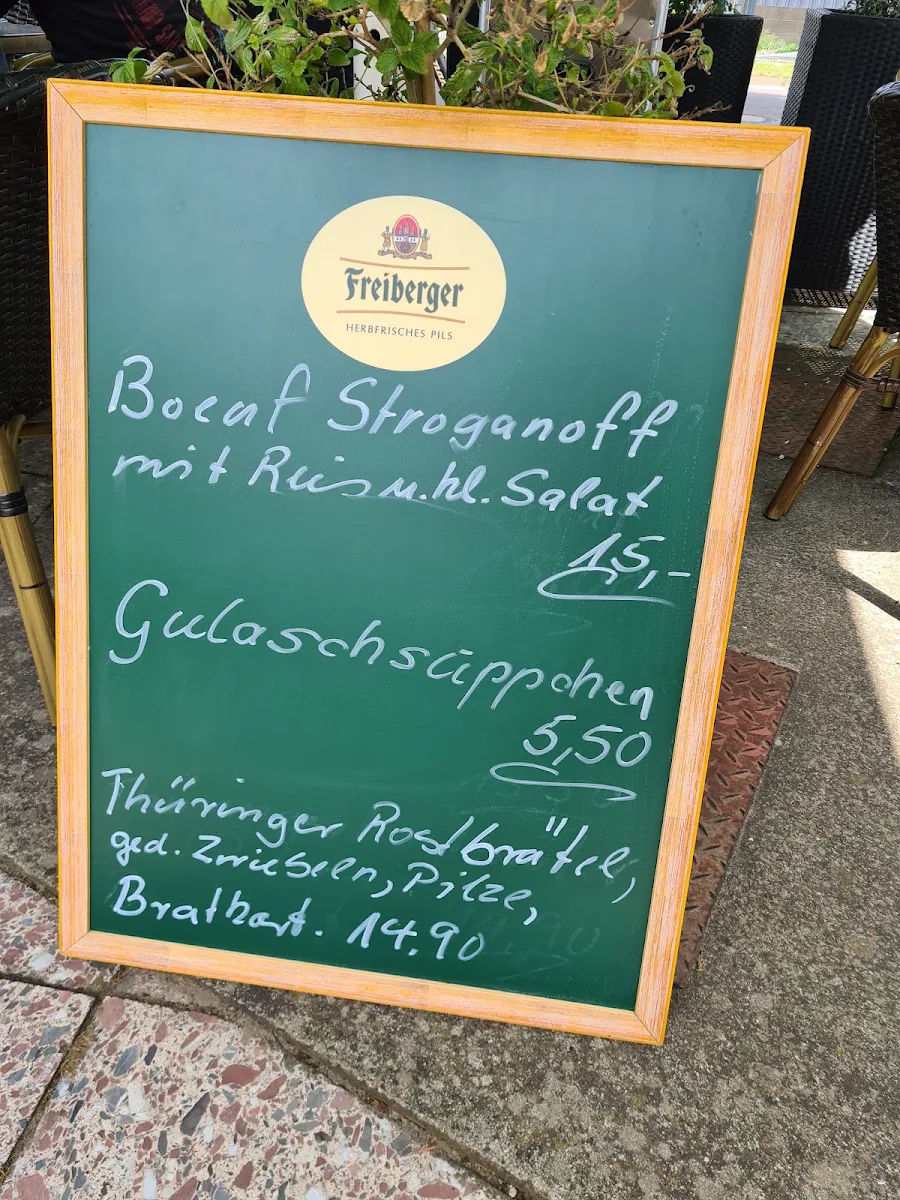 Freiberger
HERBFRISCHES PILS
Boeuf Stroganoff
mit Reis u. kl. Salat
15,-
Gulaschsüppchen
5,50
Thüringer Rostbrätel,
ged. Zwiebeln, Pilze,
Bratkart. 14,90